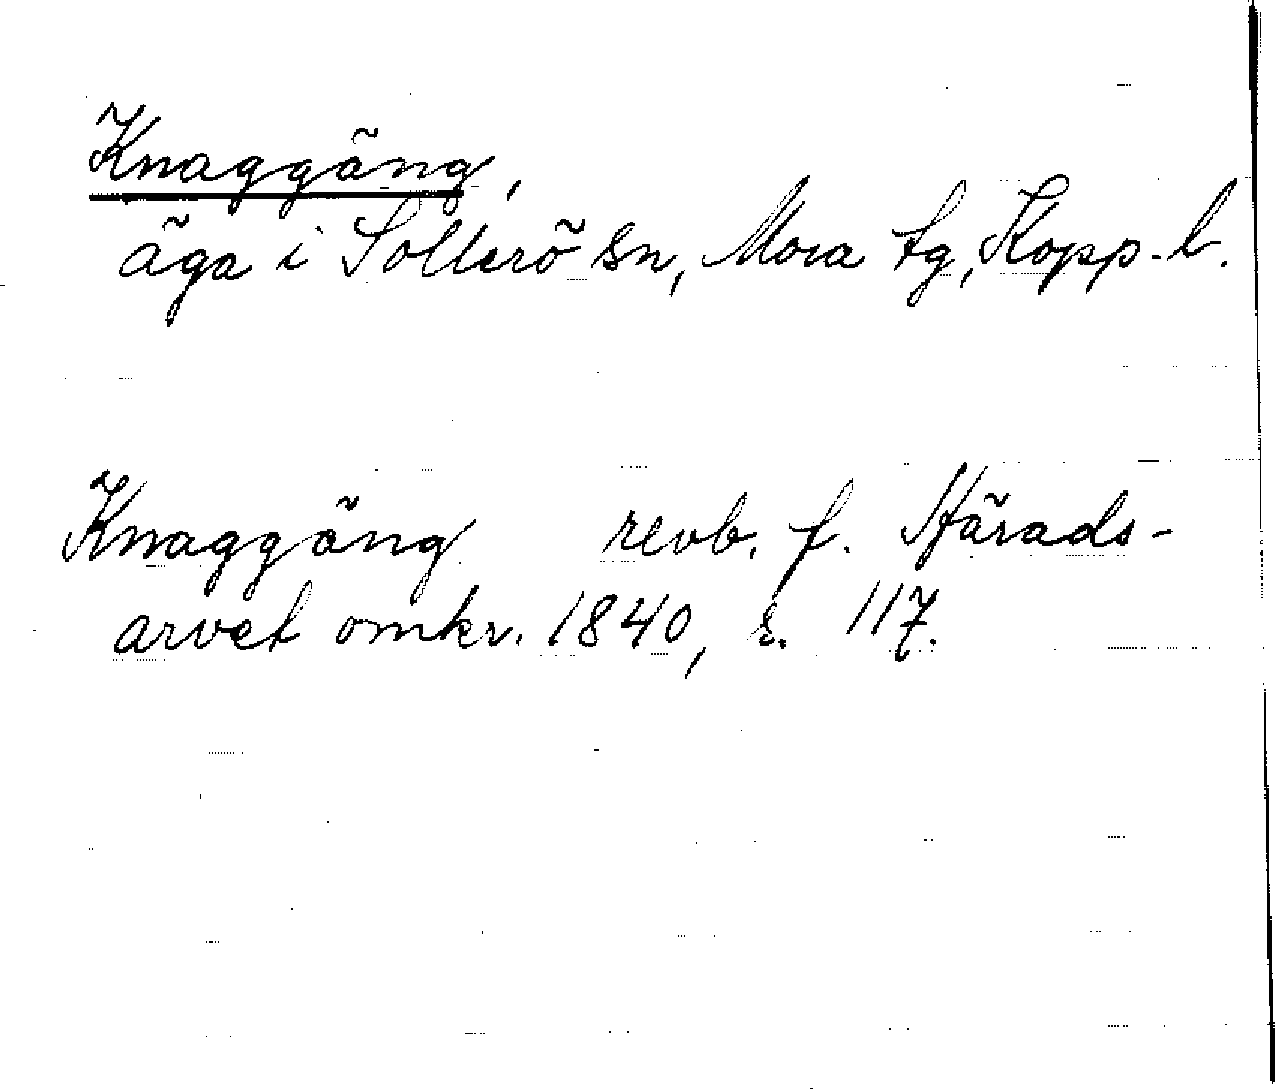 Knaggäng,
äga i Sollerö sn, Mora tg, Kopp. l.
Knaggäng revb. f. Härads-
arvet omkr. 1840, s. 117.